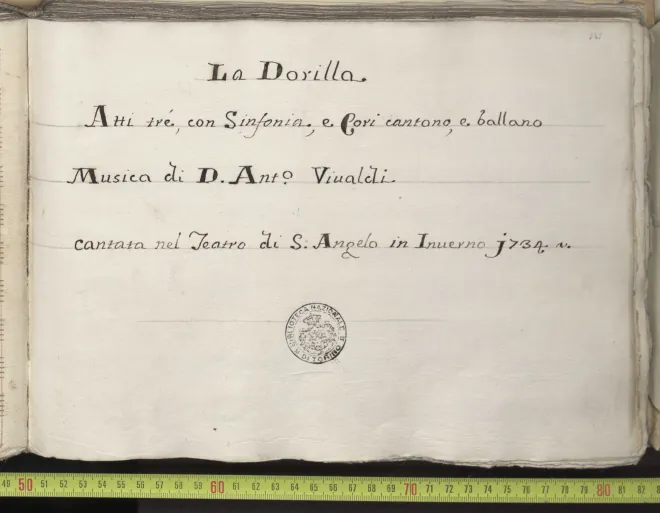 141
La Dorilla.
Atti tré, con Sinfonia, e Cori cantano, e ballano
Musica di D. Ant.o Viualdi.
cantata nel Teatro di S. Angelo in Inuerno j734
BIBLIOTECA NAZIONALE
DI TORINO
49 50 51 52 53 54 55 56 57 58 59 60 61 62 63 64 65 66 67 68 69 70 71 72 73 74 75 76 77 78 79 80 81 82